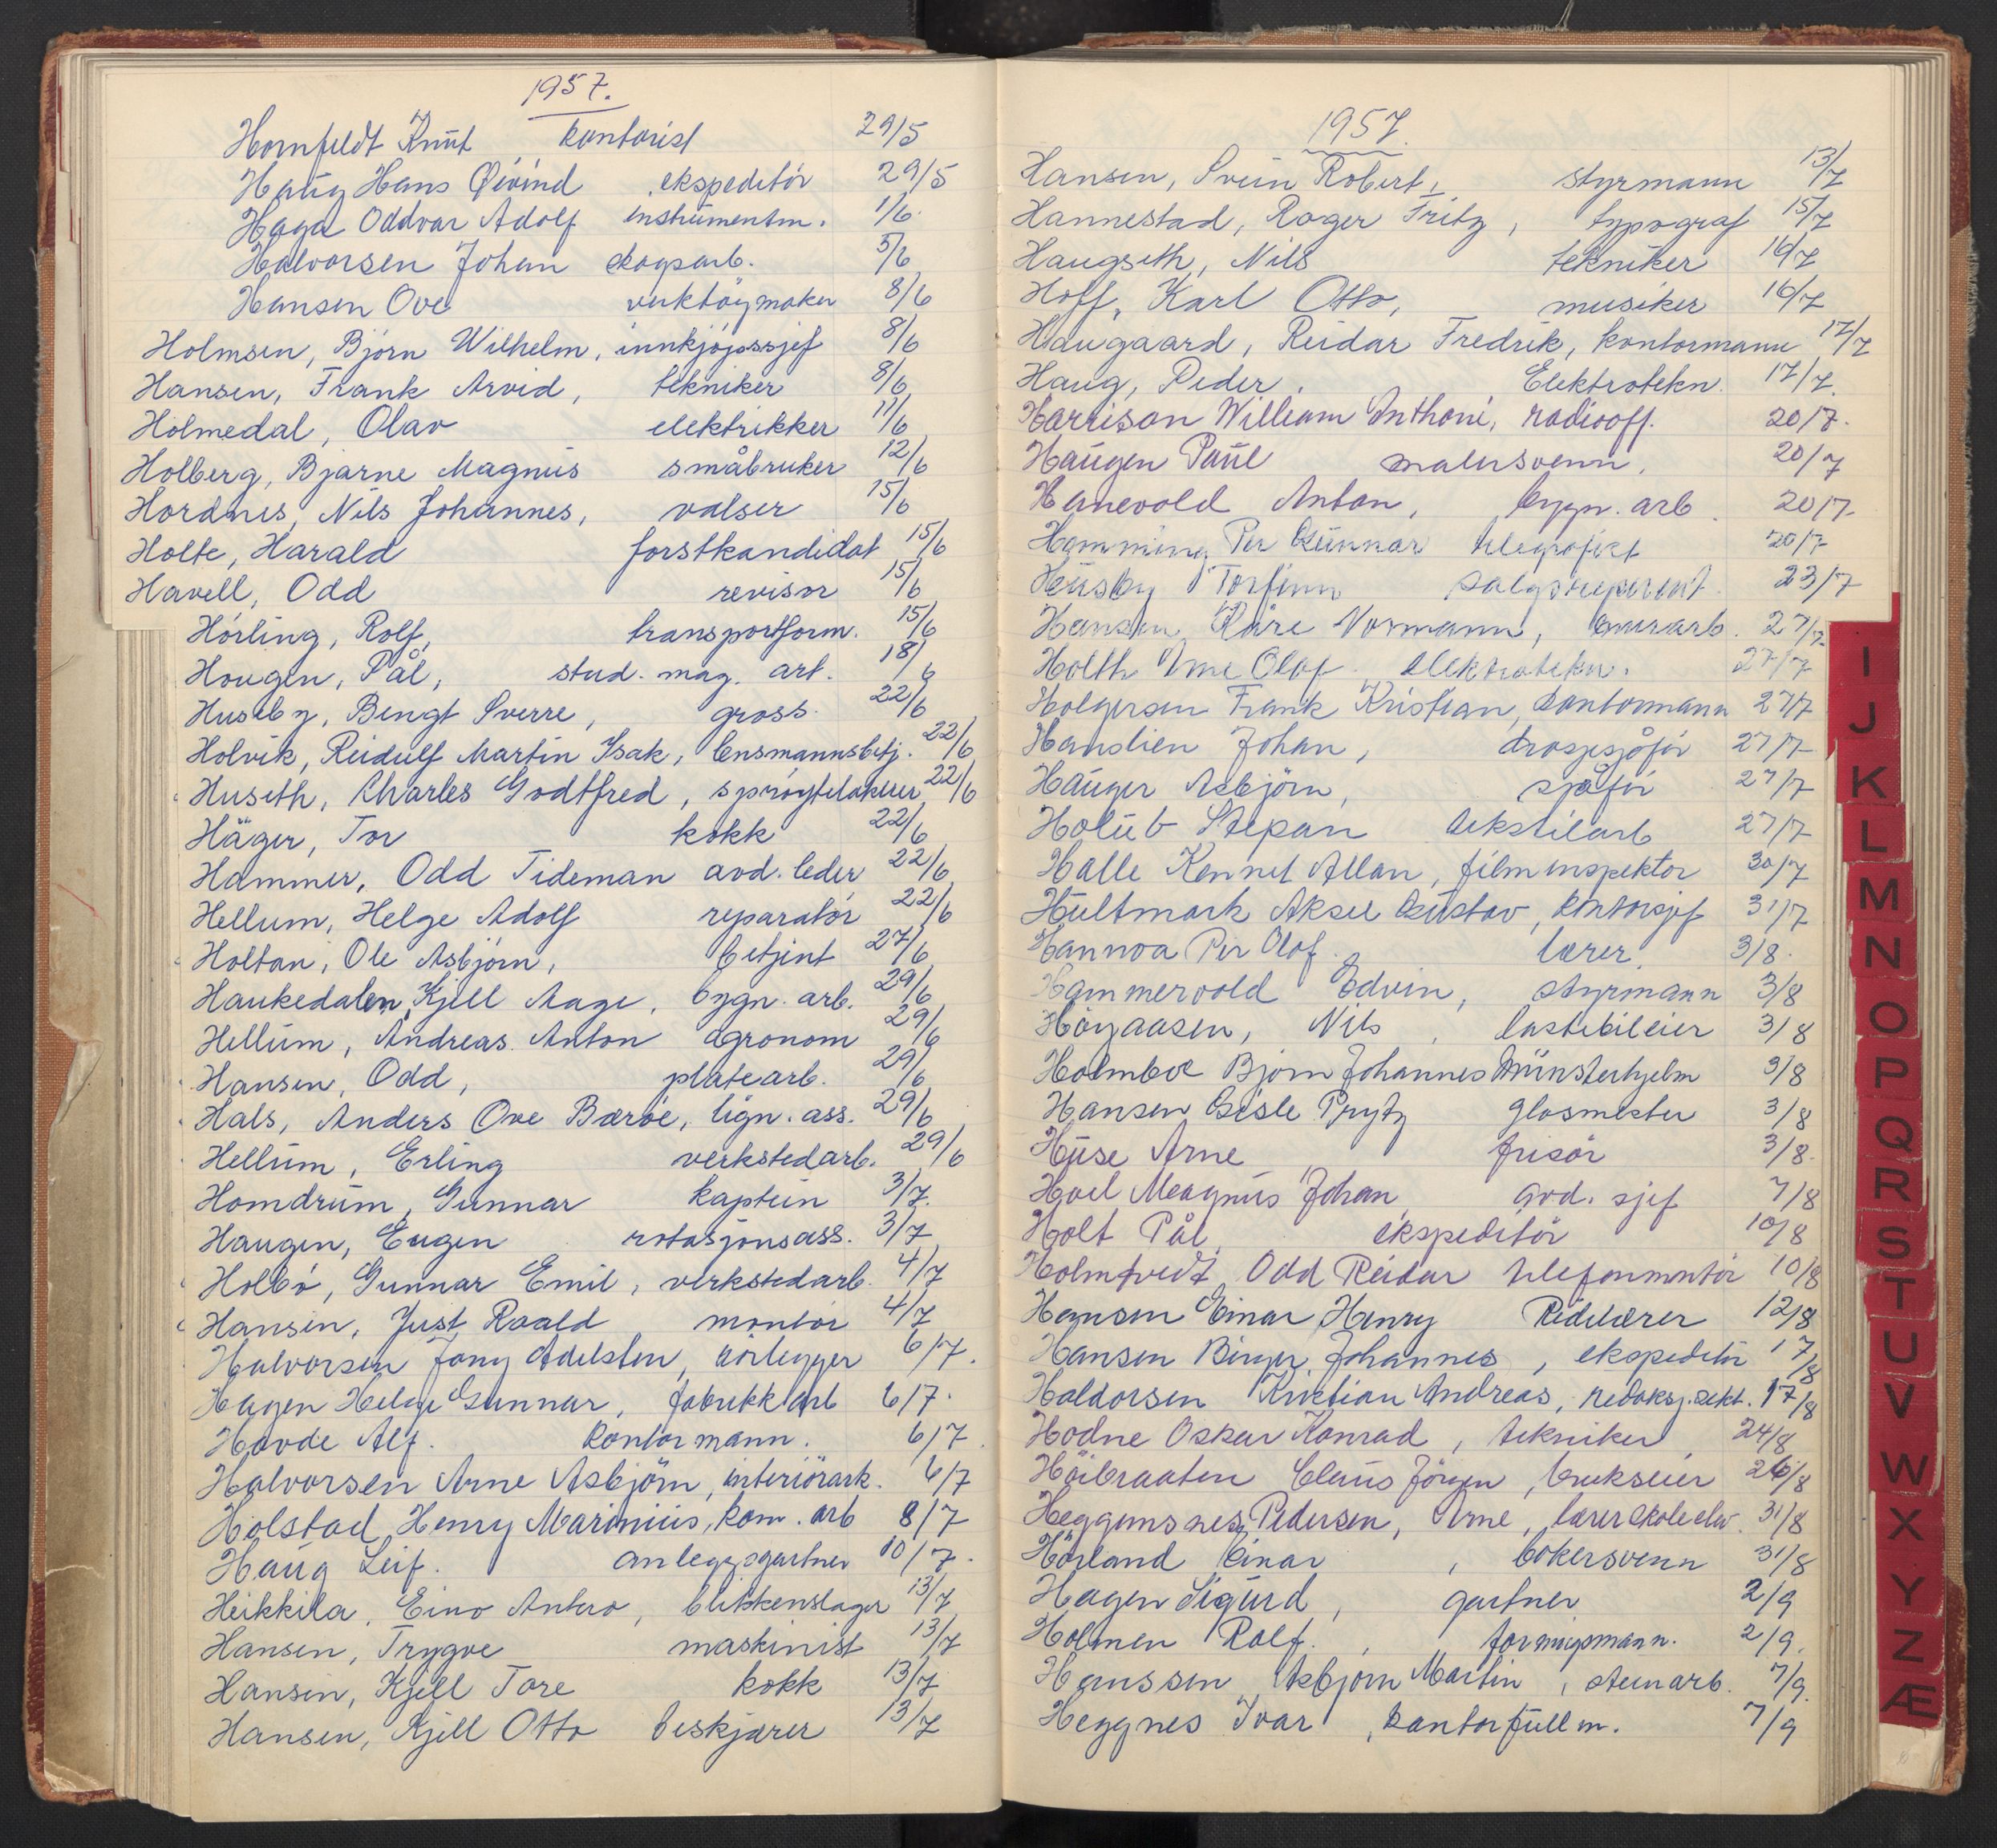 1957.
Hornfeldt Knut kontorist 29/5
Haug Hans Øivind ekspeditör 29/5
Haga Oddvar Adolf instrumentm. 1/6.
Halvorsen Johan skogsarb. 5/6
Hansen Ove verktöymaker 8/6
Holmsen, Björn Wilhelm, innkjöpssjef 8/6
Hansen, Frank Arvid, tekniker 8/6
Holmedal, Olav elektrikker 11/6
Holberg, Bjarne Magnus småbruker 12/6
Hordnes, Nils Johannes, valser 15/6
Holte, Harald forstkandidat 15/6
Havell, Odd revisor 15/6
Hörling, Rolf, transportform. 15/6
Hougen, Pål, stud. mag. art. 18/6
Huseby, Bengt Sverre, gross. 22/6
Holvik, Reidulf Martin Isak, lensmannsbetj. 22/6
Huseth, Charles Godtfred, spröytelakerer 22/6
Häger, Tor kokk 22/6
Hammer, Odd Tideman avd. leder 22/6
Hellum, Helge Adolf reparatör 22/6
Holtan, Ole Asbjörn, betjent 27/6
Haukedalen, Kjell Aage, bygn. arb. 29/6
Hellum, Andreas Anton agronom 29/6
Hansen, Odd, platearb. 29/6
Hals, Anders Ove Bæröe, lign. ass. 29/6
Hellum, Erling verkstedarb. 29/6
Homdrum, Gunnar kaptein 3/7.
Haugen, Eugen rotasjonsass. 3/7
Holbö, Gunnar Emil, verkstedarb. 4/7
Hansen, Just Roald montör 4/7
Halvorsen Jony Adelsten, rörlegger 6/7.
Hagen Helge Gunnar, fabrikkarb 6/7.
Hovde Alf. kontormann. 6/7.
Halvorsen Arne Asbjörn, interiörark. 6/7
Holstad, Henry Marinius, kom. arb 8/7
Haug Leif. anleggsgartner 10/7.
Heikkila, Eino Antero, blikkenslager 13/7
Hansen, Trygve maskinist 13/7
Hansen, Kjell Tore kokk 13/7
Hansen, Kjell Otto beskjærer 13/7
1957.
Hansen, Svein Robert, styrmann 13/7
Hannestad, Roger Fritz, typograf 15/7
Haugseth, Nils tekniker 16/7
Hoff, Karl Otto, musiker 16/7
Haugaard, Reidar Fredrik, kontormann 17/7
Haug, Peder, Elektrotekn. 17/7.
Harrison William Anthoni, radiooff. 20/7.
Haugen Paul malersvenn, 20/7
Hanevold Anton, bygn. arb. 20/7
Hemming Per Gunnar telegrafist 20/7
Huseby Torfinn salgsreparent 23/7
Hansen Kåre Normann, murarb. 27/7.
Holth Arne Olaf elektrotekn. 27/7
Holgersen Frank Kristian, kontormann 27/7
Hanslien Johan, drosjesjåför 27/7
Hauger Asbjörn, sjåför 27/7
Holub Stepan tekstilarb 27/7
Halle Kennet Allan, filminspektor 30/7
Hultmark Aksel Gustav, kontorsjef 31/7
Hannoa Per Olof. lærer. 3/8.
Hammervold Edvin, styrmann 3/8
Höyaasen, Nils, lastebileier 3/8
Holmboe Bjorn Johannes Münsterhjelm 3/8
Hansen Gisle Prytz glasmester 3/8
Huse Arne frisör 3/8.
Hoel Magnus Johan, avd. sjef 7/8
Holt Pål, ekspeditör 10/8
Holmtvedt Odd Reidar telefonmontör 10/8
Hansen Einar Henry Ridelærer 12/8
Hansen Birger Johannes, ekspeditör 17/8
Haldorsen Kristian Andreas, redaksj. sekr. 17/8
Hodne Oskar Konrad, tekniker, 24/8
Höibraaten Claus Jörgen, brukseier 26/8
Heggemsnes Pedersen, Arne, lærerskoleelev. 31/8
Hörland Einar, bökersvenn 31/8
Hagen Sigurd, gartner 2/9
Holmen Rolf., formingsmann. 2/9.
Hanssen Asbjörn Martin, stenarb. 7/9.
Heggnes Ivar, kontorfullm. 7/9
I
J
K
L
M
N
O
P
Q
R
S
T
U
V
W
X
Y
Z
Æ